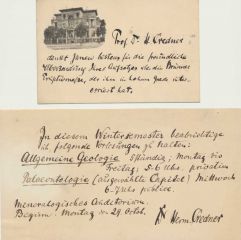 Prof. Dr. H. Credner
dankt Ihnen bestens für die freundliche
Übersendung Ihres Aufsatzes über die
die ihn in hohem Grade inter-
essiert hat.
In diesem Wintersemester beabsichtige
ich folgende Vorlesungen zu halten:
Allgemeine Geologie 5stündig; Montag bis
Freitag; 5-6 Uhr; privatim
Palaeontologie (ausgewählte Capitel) Mittwoch
6-7 Uhr; publice.
Mineralogisches Auditorium.
Beginn: Montag den 29 Octob.
Dr Herm. Credner